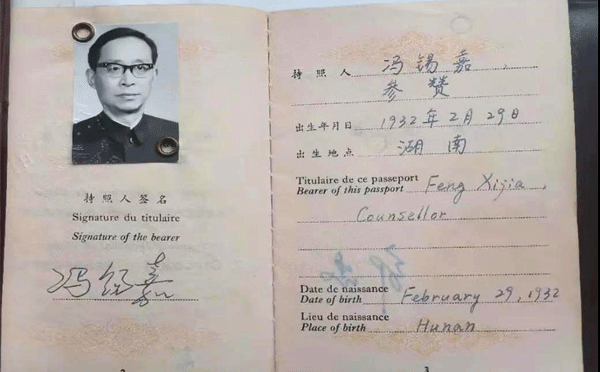 持照人签名
Signature du titulaire
Signature of the bearer
冯锡嘉
持照人 冯锡嘉
参赞
出生年月日 1932年2月29日
出生地点 湖南
Titulaire de ce passeport
Bearer of this passport Feng Xijia,
Counsellor
Date de naissance
Date of birth February 29, 1932
Lieu de naissance
Place of birth Hunan
3